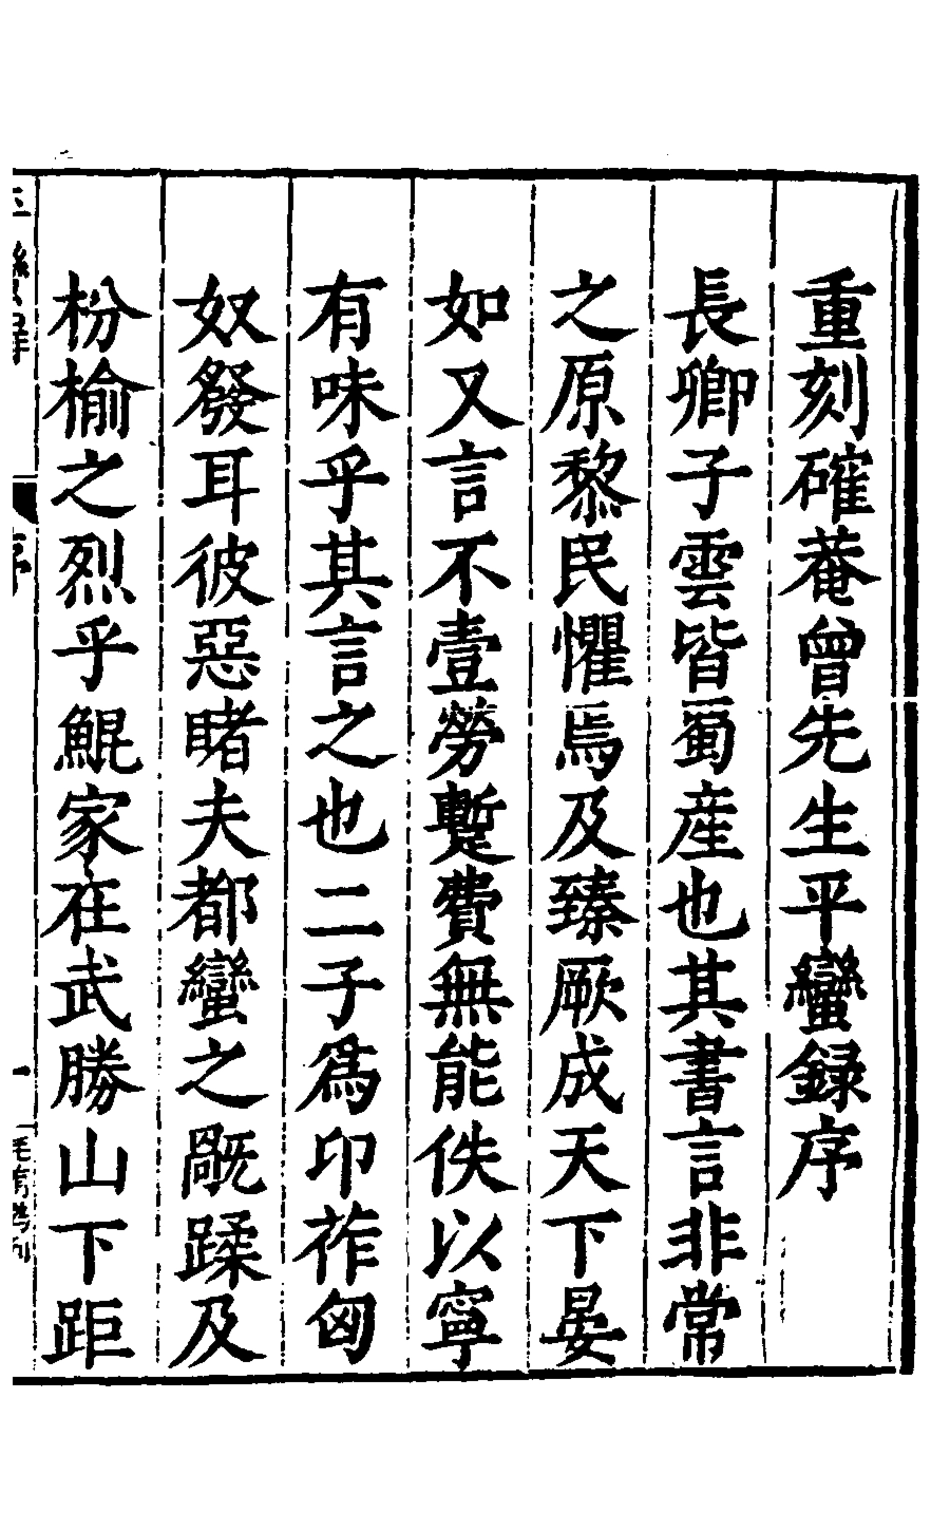 重刻確菴曾先生平蠻録序
長卿子雲皆蜀産也其書言非常
之原黎民懼焉及臻厥成天下晏
如又言不壹勞蹔費無能佚以寧
有味乎其言之也二子爲卭莋匈
奴發耳彼惡睹夫都蠻之毷蹂及
枌榆之烈乎鯤家在武勝山下距
序
一